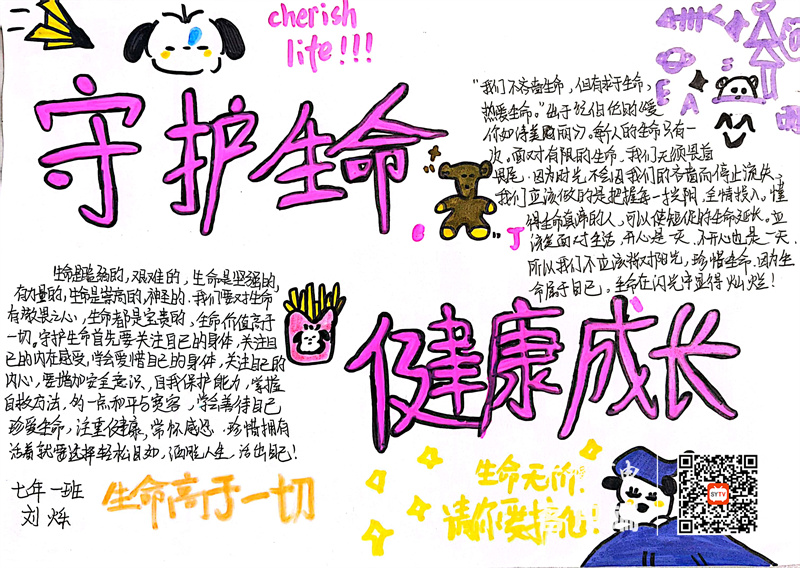 cherish
life!!!
守护生命
"我们不吝啬生命，但有求于生命，
热爱生命。"
每个人的生命只有一
次。面对有限的生命，我们无须畏首
畏尾，因为时光不会因我们的吝啬而停止流失。
我们应该做的是把握每一拨阳，全情投入。懂
得生命真谛的人，可以使短促的生命延长。
面对生活，开心是一天，不开心也是一天。
所以我们不应该，珍惜生命，因为生
命属于自己，生命在闪光中显得灿烂！
E A
J
生命是脆弱的，艰难的，生命是坚强的，
有力量的，生命是崇高的，神圣的。我们要对生命
有敬畏之心，生命都是宝贵的，生命价值高于
一切。守护生命首先要关注自己的身体，关注自
己的内在感受，学会爱惜自己的身体，关注自己的
内心，要增加安全意识，自我保护能力，掌握
自救方法，多一点和平与宽容，学会善待自己
珍爱生命，注重健康，常怀感恩，珍惜拥有
活着就要选择轻松自如，洒脱人生，活出自己！
健康成长
七年一班
刘烁
生命高于一切
生命无价
请你要
SYTV